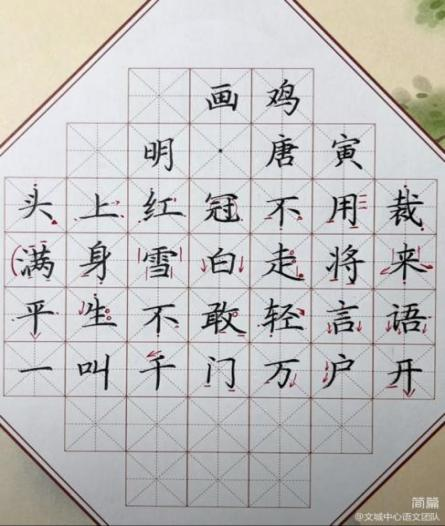 画鸡
明·唐寅
头上红冠不用裁
满身雪白走将来
平生不敢轻言语
一叫千门万户开
简篇
@文城中心语文团队